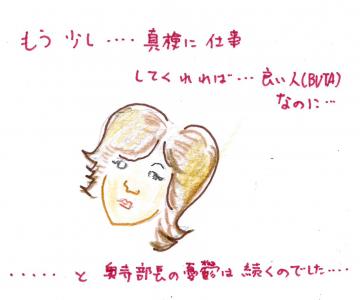 もう 少し ‥‥ 真検に 仕事
してくれれば… 良い人(BUTA)
なのに…
‥‥‥ と 奥寺部長の憂鬱は 続くのでした‥‥